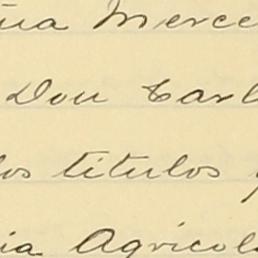 ña Merce
Don Carl
los titulos y
ia Agricola